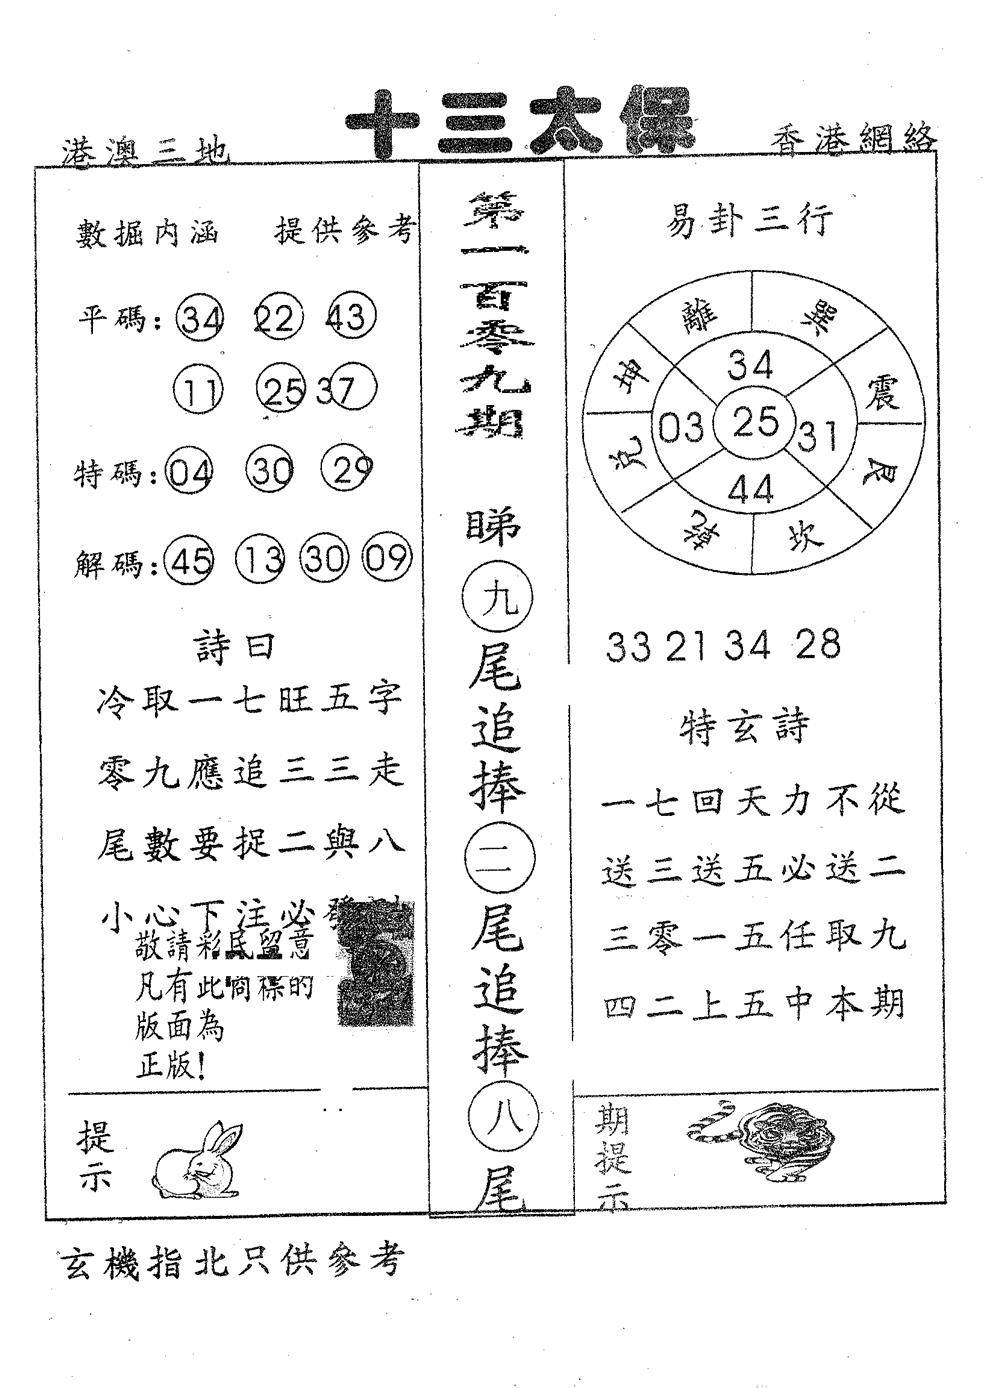 港澳三地
十三太保
香港網絡
數掘内涵 提供參考
平碼: 34 22 43
11 25 37
特碼: 04 30 29
解碼: 45 13 30 09
詩曰
冷取一七旺五字
零九應追三三走
尾數要捉二與八
小心下注必發
敬請彩民留意
凡有此商標的
版面為
正版!
提示
第一百零九期
睇九尾追捧二尾追捧八尾
易卦三行
離 巽
坤 34 震
兌 03 25 31 艮
44
乾 坎
33 21 34 28
特玄詩
一七回天力不從
送三送五必送二
三零一五任取九
四二上五中本期
期提示
玄機指北只供參考